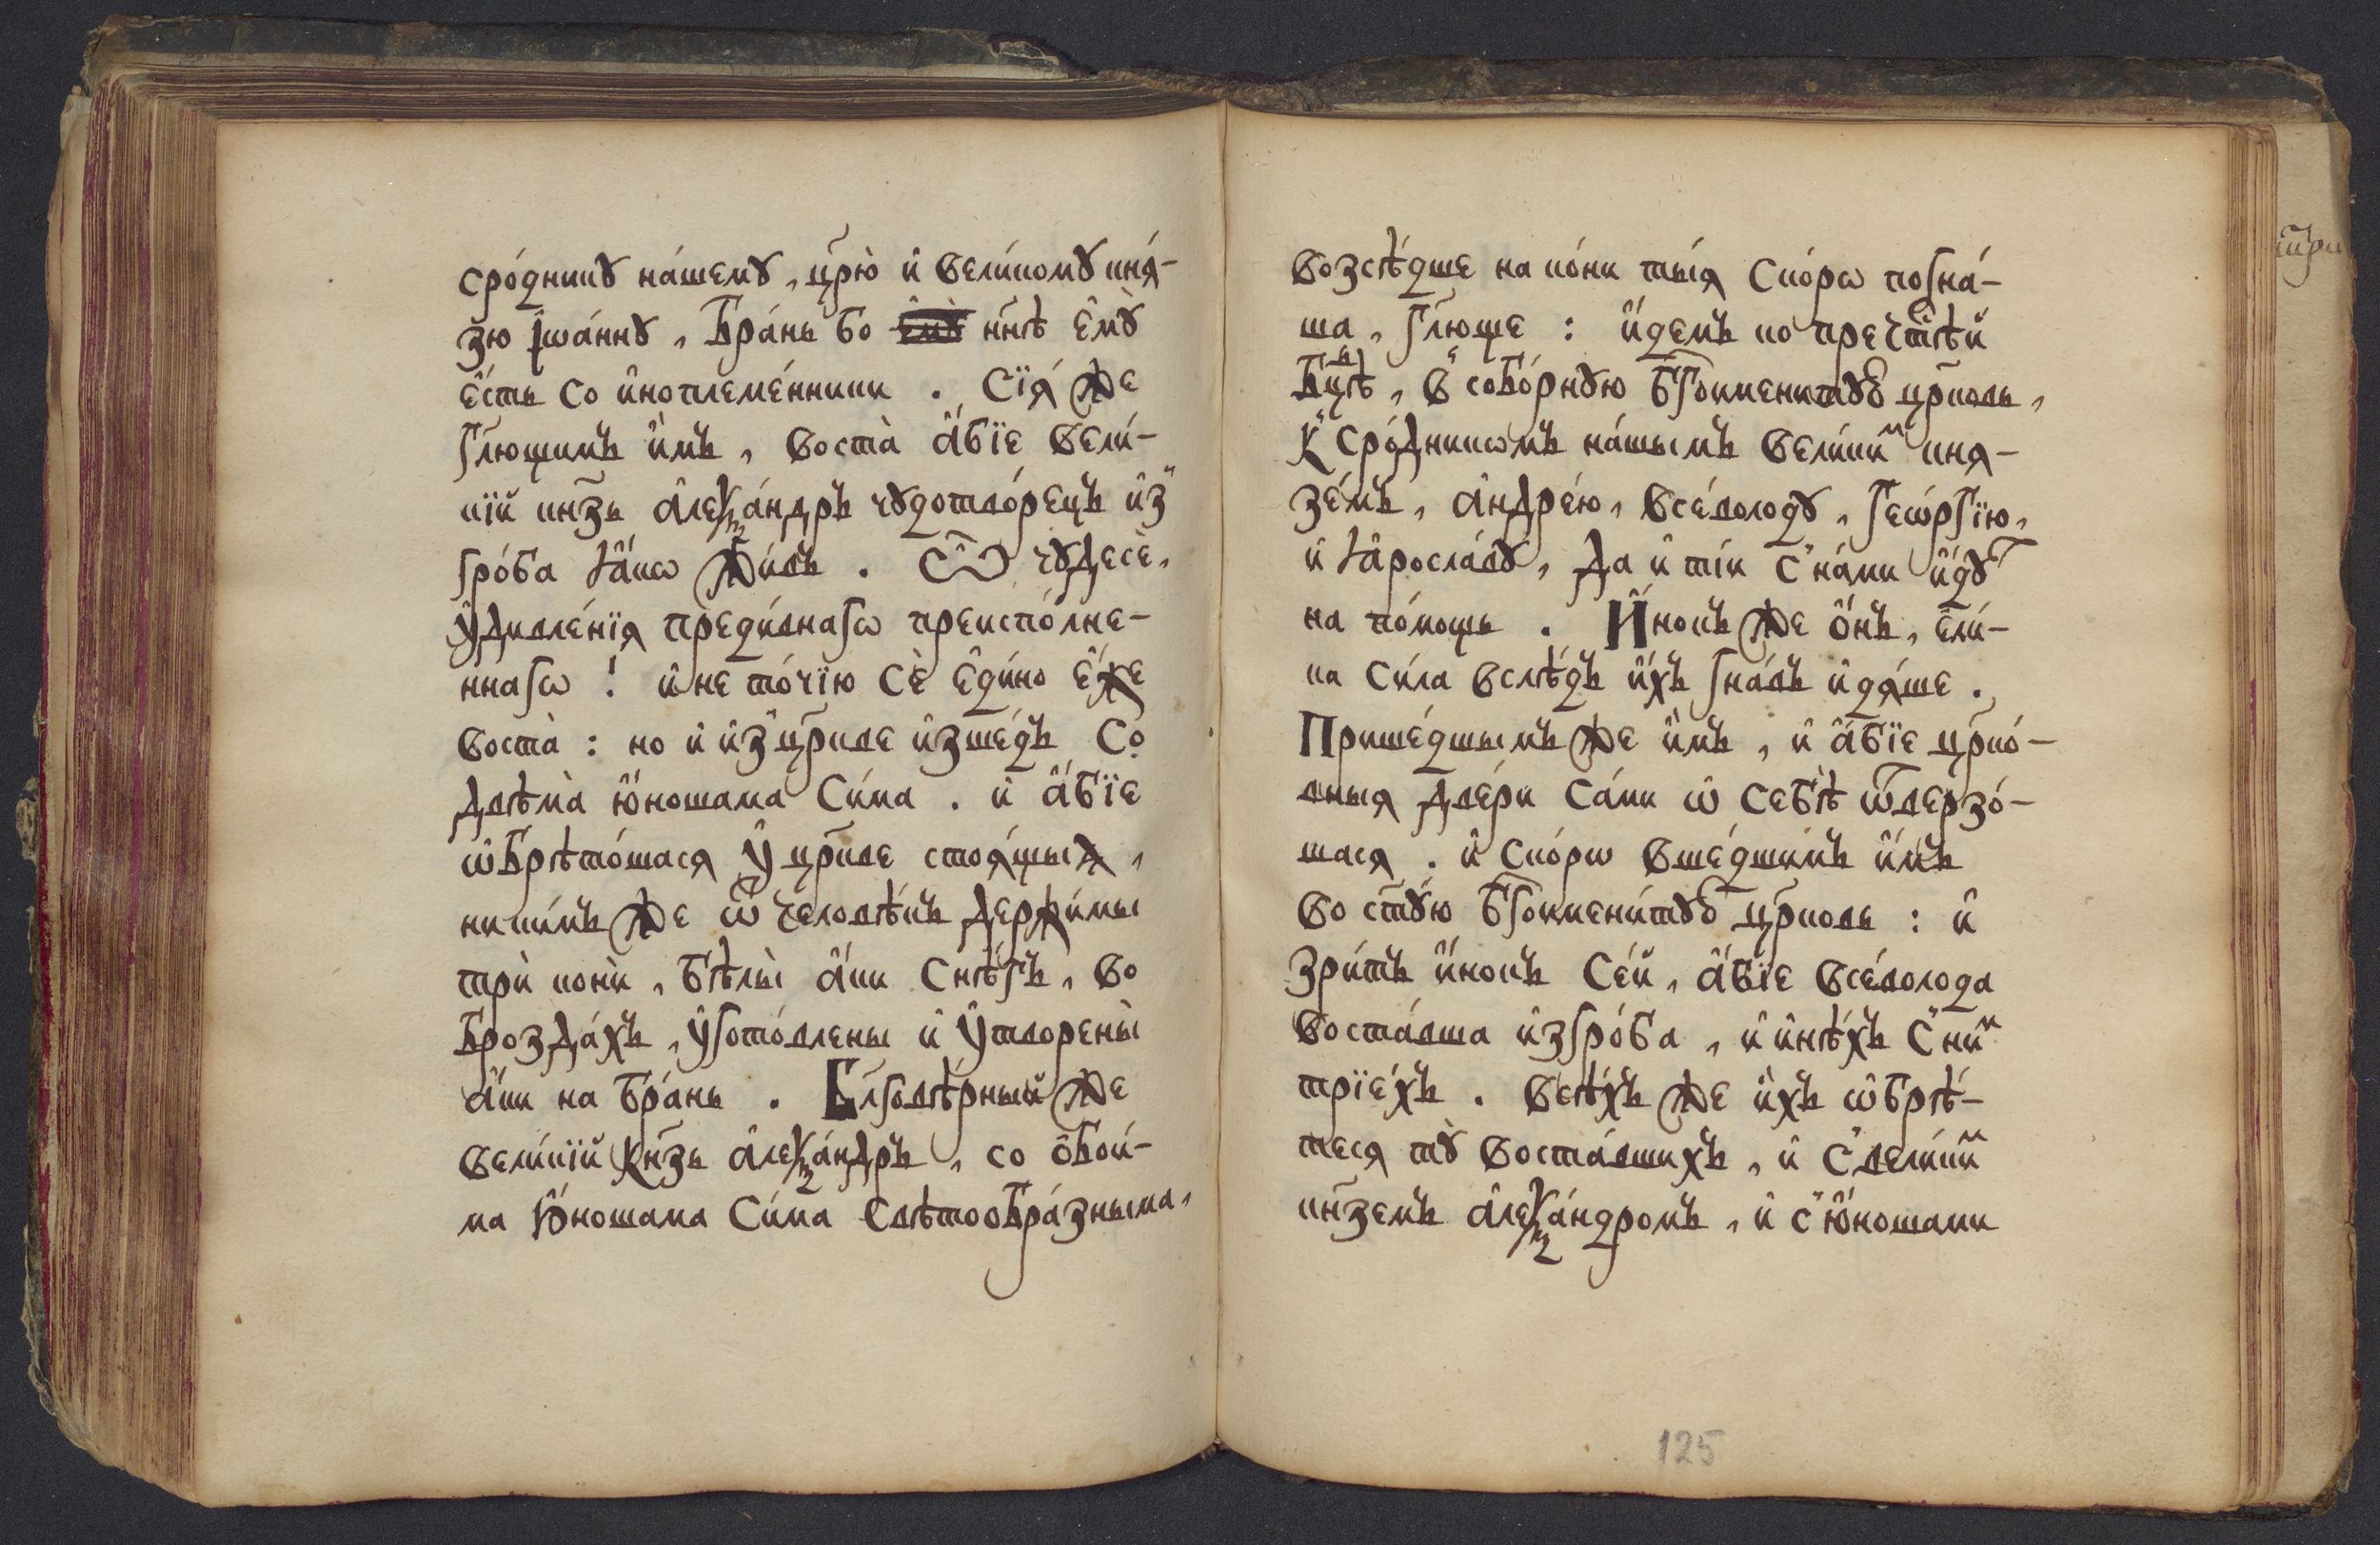 сро́дникꙋ на́шемꙋ, цр҃ю̀ и҆ вели́комꙋ кнѧ́-
зю І҆ѡа́ннꙋ, Бра́нь бо н҃нѣ є҆мꙋ̀
є҆́сть со и҆ноплеме́нники . Сїѧ́ же
гл҃ющимъ и҆̀мъ, воста̀ а҆́бїе вели́-
кїй кн҃зь а҆леѯа́ндръ чꙋдотво́рецъ и҆з̾
гро́ба ꙗ҆́кѡ жи́въ . Ѽ чꙋдесѐ,
ᲂу҆дивле́нїѧ преди́внагѡ преиспо́лне-
ннагѡ ! и҆ не то́чїю сѐ є҆ди́но є҆́же
воста̀ : но и҆ и҆з̾ цр҃кве и҆зше́дъ Со
двѣма̀ ю҆́ношама Си́ма . и҆ а҆́бїе
ѡ҆брѣто́шасѧ ᲂу҆ цр҃кве стоѧ́щыѧ,
ники́мъ же ѿ человѣ́къ держи́мы
трѝ кони̑, бѣлы̀ а҆́ки снѣ́гъ, во
брозда́хъ, ᲂу҆гото́влены и҆ ᲂу҆творены̀
а҆́ки на бра́нь . Бл҃говѣ́рный же
вели́кїй кн҃зь а҆леѯа́ндръ, со ѻ҆бои́-
ма ю҆́ношама Си́ма Свѣтоѻбра́зныма,
возсѣ́дше на ко́ни ты́ѧ Ско́рѡ погна́-
ша, гл҃юще : и҆́демъ ко пречⷭ҇тѣй
Бц҃ѣ, в̾ собо́рнꙋю бг҃оимени́тꙋю цр҃ковь,
К̾ сро́дникѡмъ на́шымъ вели́киⷨ кнѧ-
зе́мъ, а҆ндре́ю, все́володꙋ, гео́ргїю,
и҆ ꙗ҆росла́вꙋ, да и҆ ті́и с̾ на́ми и҆́дꙋⷮ
на по́мощь . И҆́нокъ же ѻ҆́нъ, є҆ли́-
ка си́ла вслѣ́дъ и҆́хъ гна́въ и҆дѧ́ше .
Прише́дшымъ же и҆̀мъ, и҆ а҆́бїе цр҃ко́-
вныѧ две́ри са́ми ѡ҆ себѣ̀ ѿверзо́-
шасѧ . и҆ ско́рѡ вше́дшимъ и҆̀мъ
во ст҃ꙋ́ю бг҃оимени́тꙋю цр҃ковь : и҆
зри́тъ и҆́нокъ се́й, а҆́бїе все́волода
воста́вша и҆з̾ гро́ба, и҆ и҆нѣ́хъ с̾ ни́ⷨ
трїе́хъ . всѣ́хъ же и҆́хъ ѡ҆брѣ́-
тесѧ тꙋ̀ воста́вшихъ, и҆ с̾ вели́киⷨ
кн҃земъ а҆леѯа́ндромъ, и҆ с̾ ю҆́ношами
125